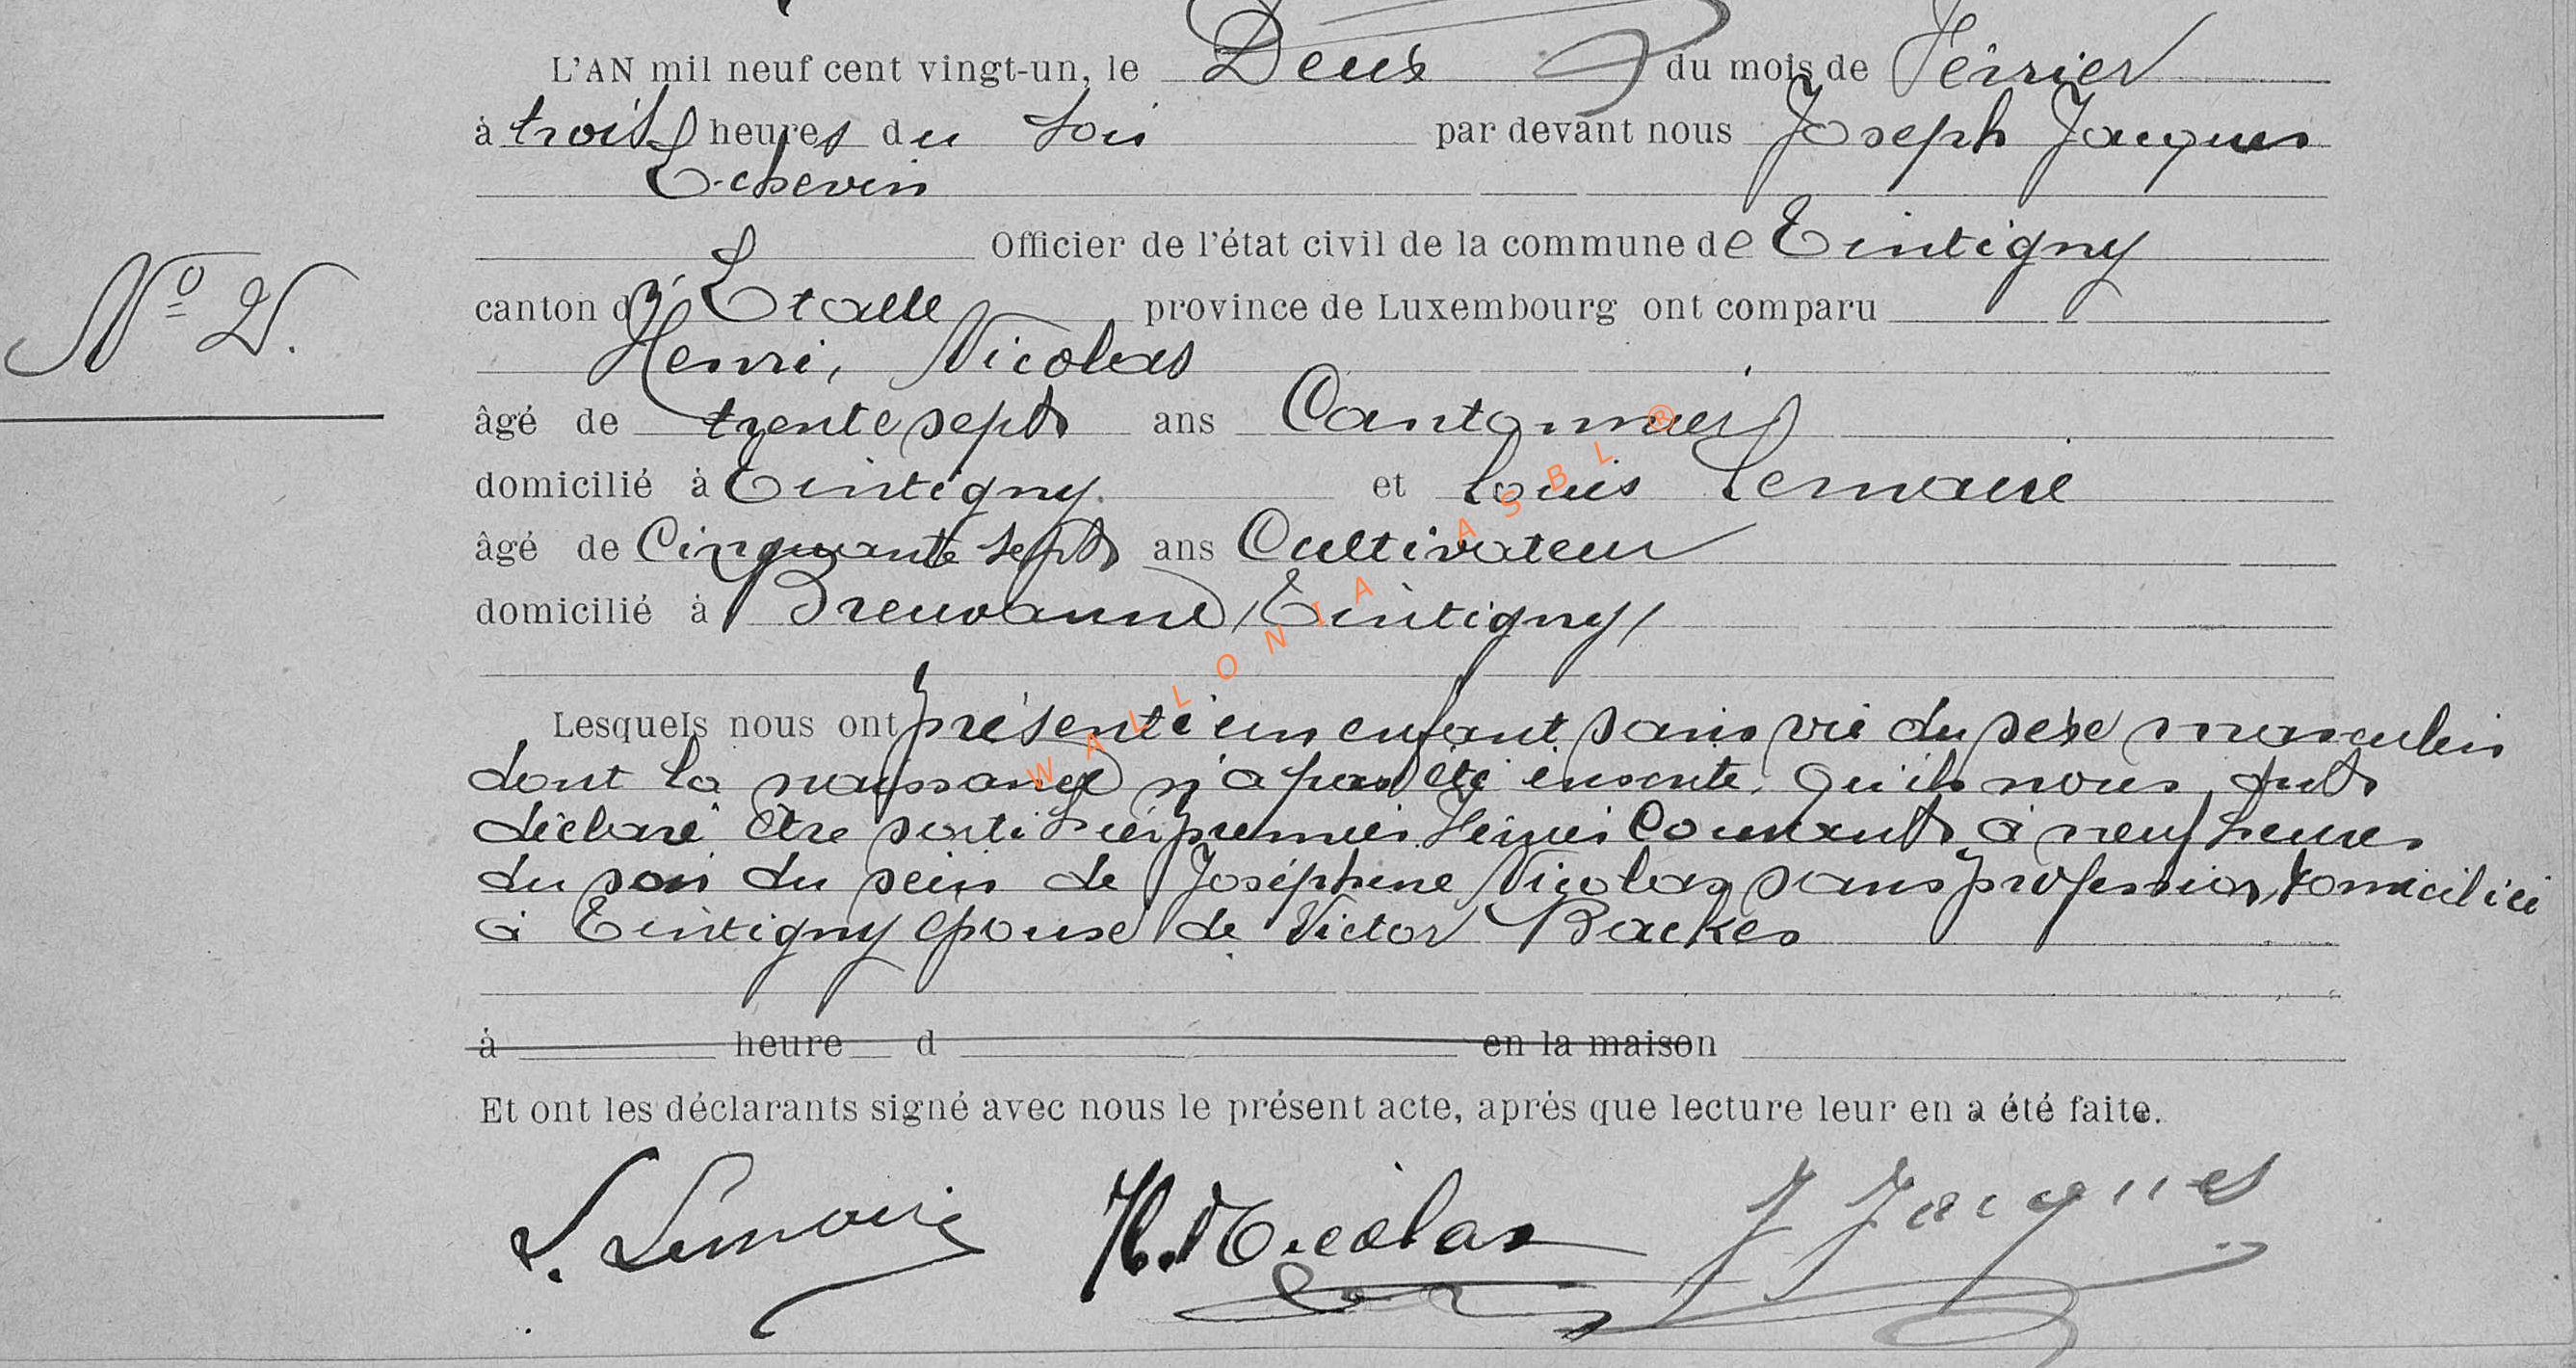 L'AN mil neuf cent vingt-un, le Deux du mois de Février
à trois heures du soir par devant nous Joseph Jacques
Echevin
Officier de l'état civil de la commune de Tintigny
canton d'Etalle province de Luxembourg ont comparu
N° 2.
Henri, Nicolas
âgé de trente sept ans Cantonnier
domicilié à Tintigny. et Louis Lemaire
âgé de Cinquante sept ans Cultivateur
domicilié à Breuvanne /Tintigny/
Lesquels nous ont présenté un enfant sans vie du sexe masculin
dont la naissance n'a pas été inscrite. qu'ils nous ont
déclaré être sorti premier Février Courant à neuf heures
du soir du sein de Joséphine Nicolas sans profession, domiciliée
à Tintigny épouse de Victor Backes
à heure d en la maison
Et ont les déclarants signé avec nous le présent acte, après que lecture leur en a été faite.
L. Lemaire H. Nicolas J Jacques
WALLONIA ASBL ®